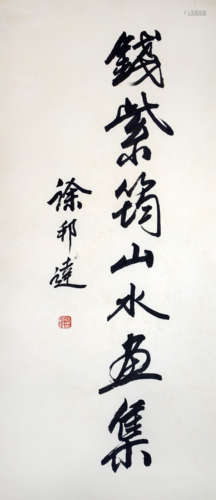 錢紫筠山水画集
徐邦達